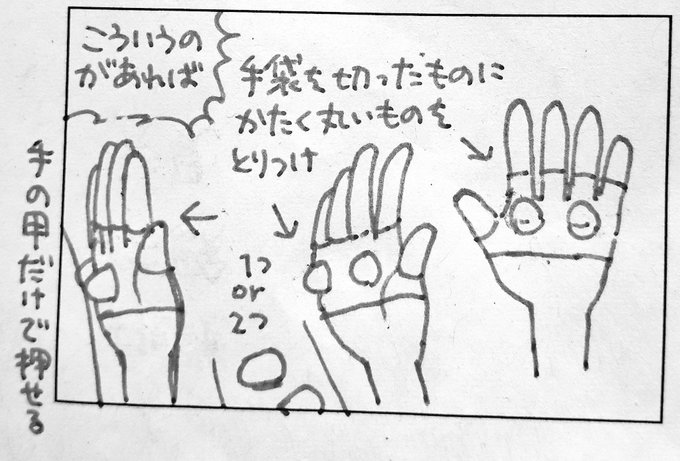 こういうの
があれば
手袋を切ったものに
かたく丸いものを
とりつけ
1つ
or
2つ
手の甲だけで押せる